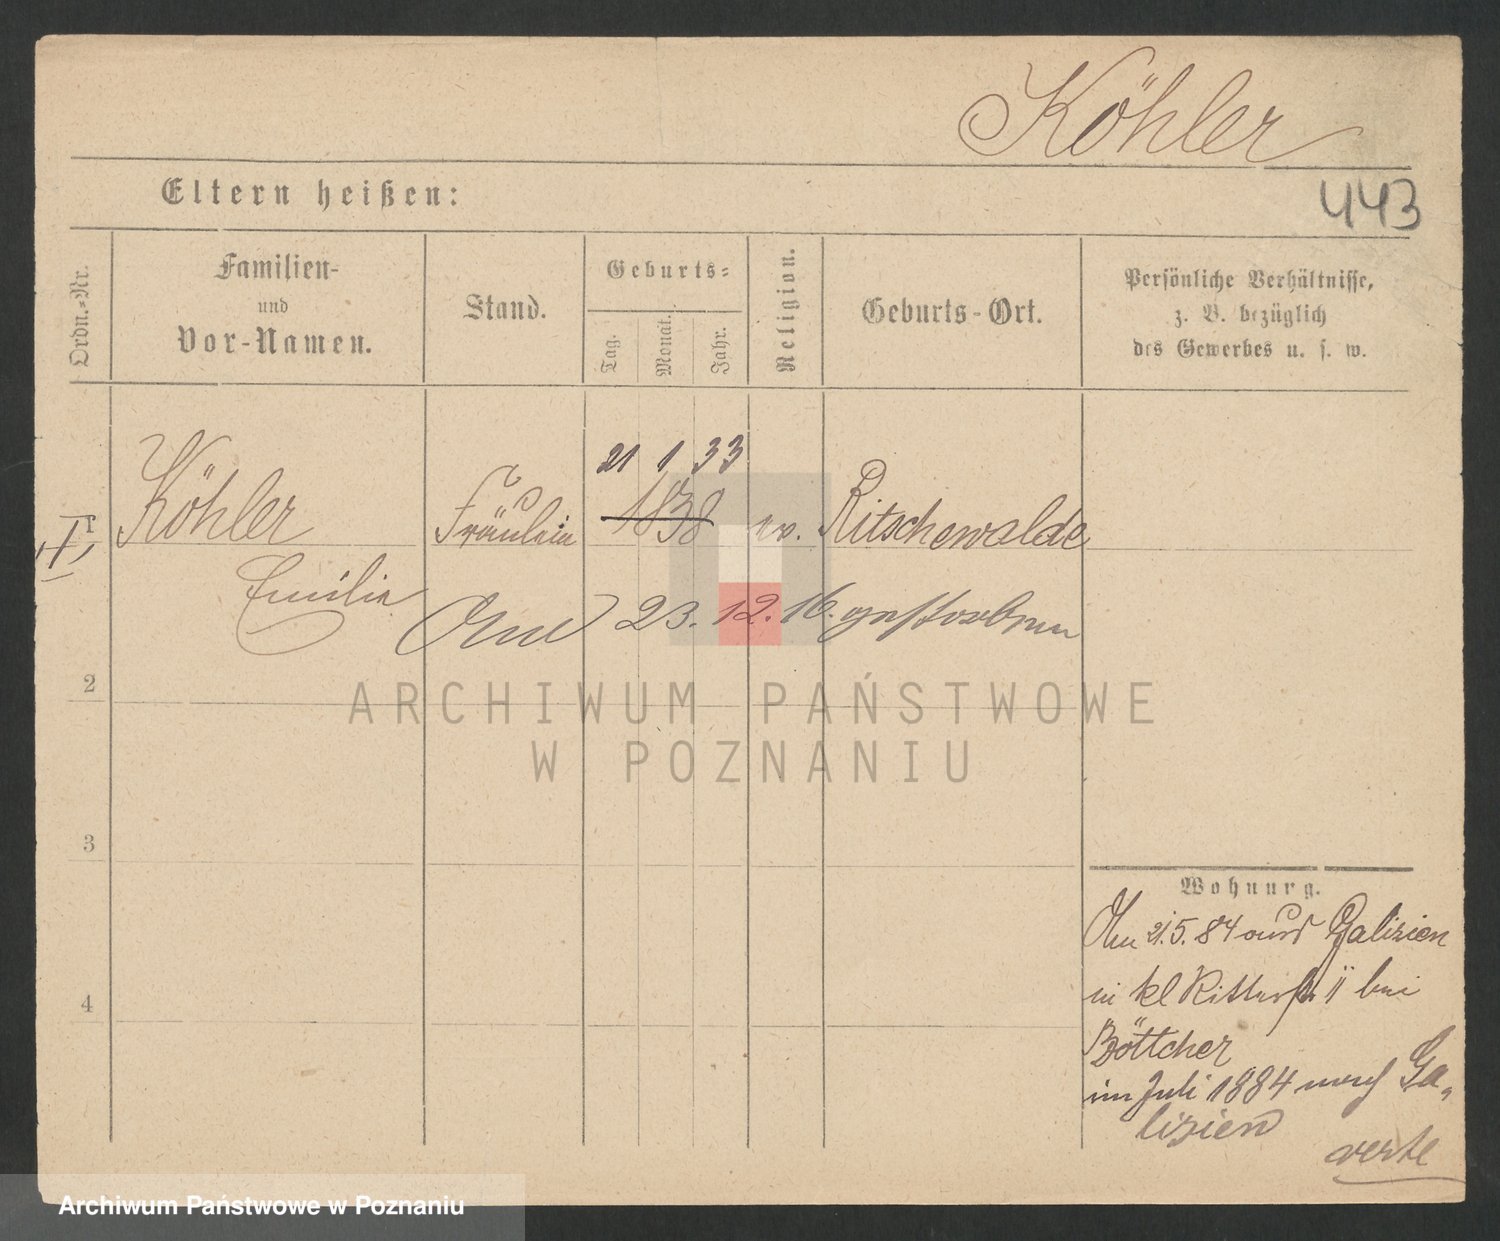 Köhler
443
Eltern heißen:
Ordn.-Nr.
Familien-
und
Vor-Namen.
Stand.
Geburts-
Tag.
Monat.
Jahr.
Religion.
Geburts-Ort.
Persönliche Verhältnisse,
z. B. bezüglich
des Gewerbes u. s. w.
21 1 33
1 Köhler Fräulein 1838 ev. Ritschewalde
Emilie
Am 23. 12. 16. gestorben
2
3
4
Wohnung.
Am 21.5.84 aus Galizien
in kl Ritterstr 11 bei
Böttcher
im Juli 1884 nach Ga-
lizien
verte
ARCHIWUM PAŃSTWOWE
W POZNANIU
Archiwum Państwowe w Poznaniu